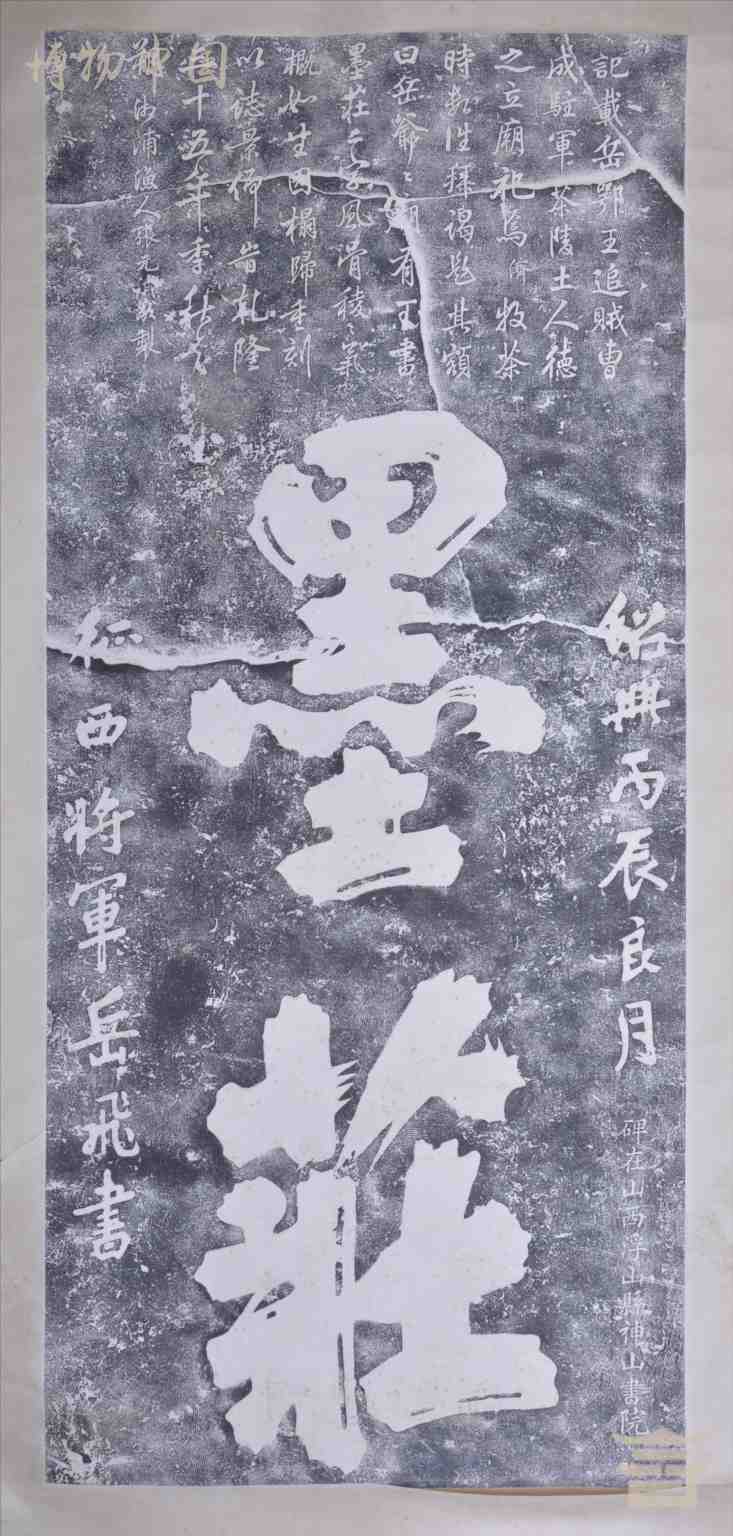 博物神图
記載岳鄂王追賊曹
成駐軍茶陵土人德
之立廟祀焉 牧茶
時部往拜謁 其額
曰岳爺爺廟有王書
墨莊之字風骨稜稜氣
概如生因榻歸重刻
以誌景仰 乾隆
十五年季秋
漁人張元 製
墨莊
紹興丙辰良月
征西將軍岳飛書
碑在山西浮山縣神山書院